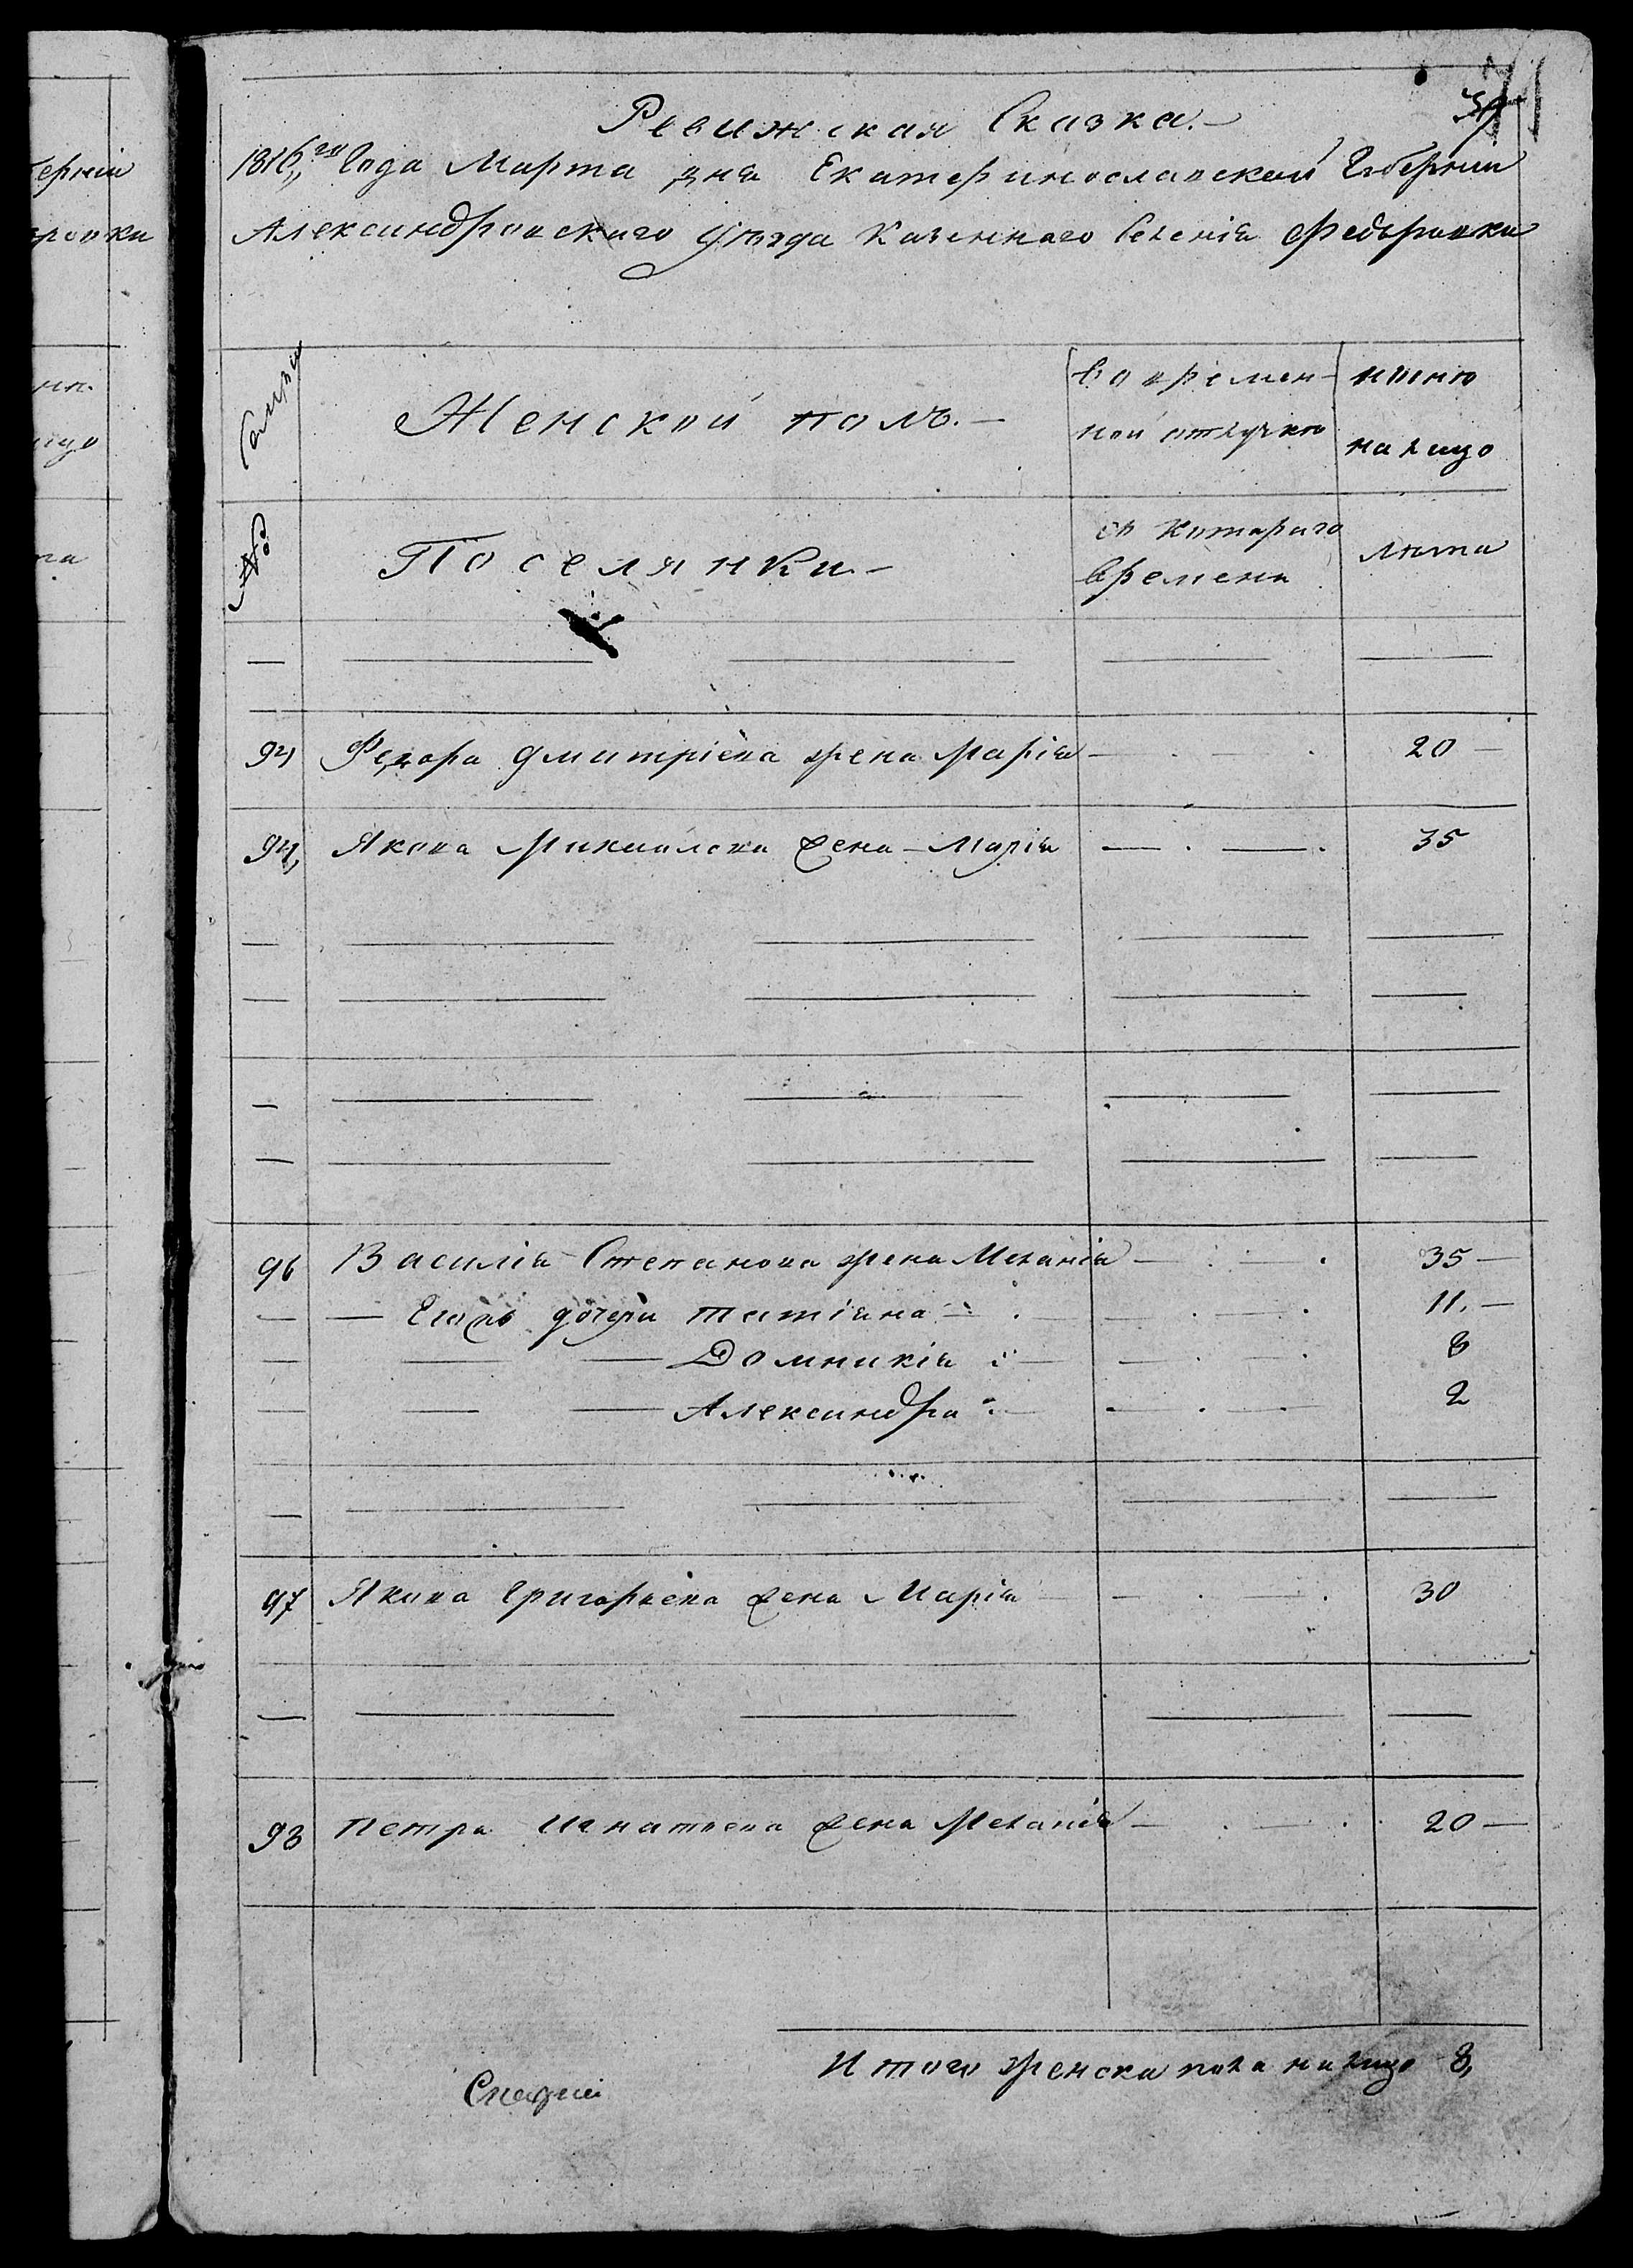 Ревижская Сказка.
1816го Года Марта дня Екатеринославской Губернии
Александровского уѣзда Казенного Селенія Федоровки
Семьи
Женской полъ.
Во времен-
ной отлучке
нынѣ
на лицо
№
Поселянки
съ котораго
времени
лѣта
Федора Дмитріева жена Марія 20
94 Якова Михайлова жена Марія 35
96 Василія Степанова жена Меланія 35
Его дочери Татіана 11
Домникія 8
Александра 2
97 Якова Григорьева жена Марія 30
98 Петра Игнатьева жена Меланія 20
Итого женска пола на лицо 8